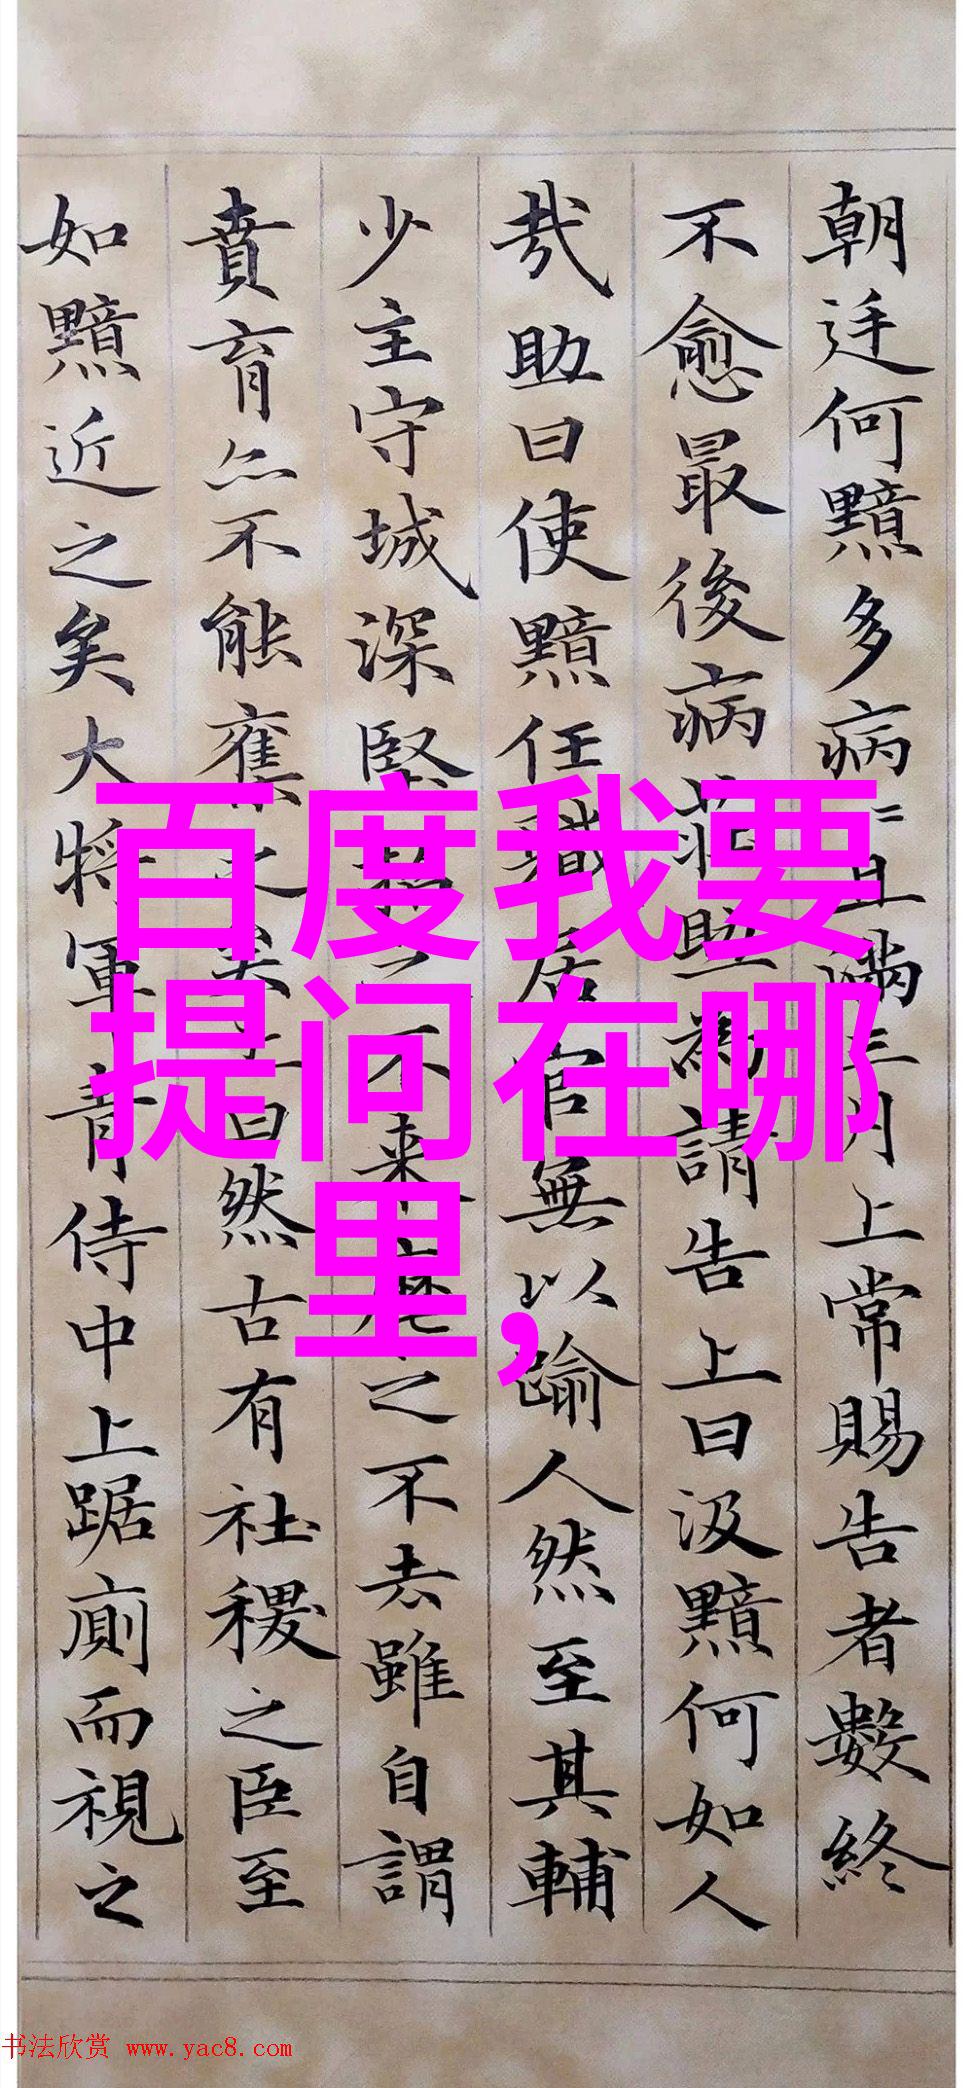 朝廷何黯多病病且滿三月上常賜告者數終
不愈最後病莊助為請告上曰汲黯何如人
哉助曰使黯任職居官無以踰人然至其輔
少主守城深堅招之不来麾之不去雖自謂
賁育亦不能奪之矣上曰然古有社稷之臣至
如黯近之矣大將軍青侍中上踞廁而視之
百度我要
提问在哪
里,
书法欣赏 www.yac8.com